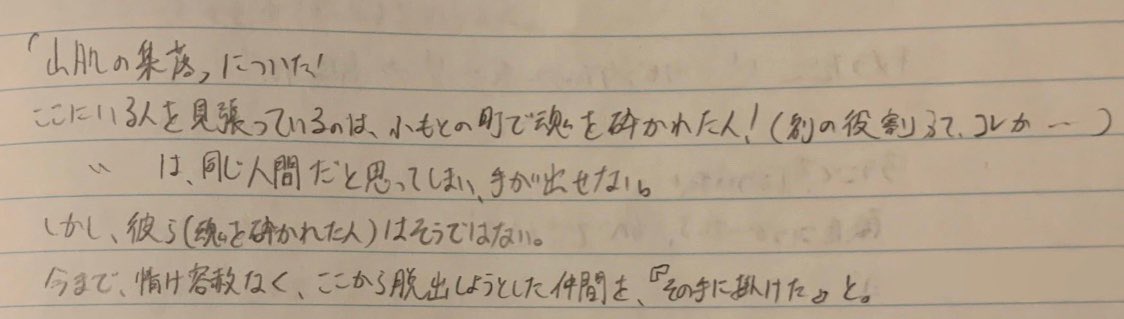 「山肌の集落」についた!
ここにいる人を見張っているのは、ふもとの町で魂を砕かれた人!(別の役割って、コレか…)
〃 は、同じ人間だと思ってしまい、手が出せない。
しかし、彼ら(魂を砕かれた人)はそうではない。
今まで、情け容赦なく、ここから脱出しようとした仲間を、『その手に掛けた』と。